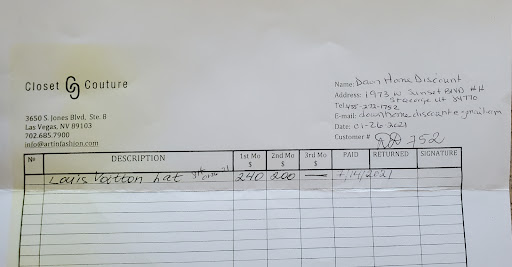 Closet Couture
3650 S. Jones Blvd, Ste. 8
Las Vegas, NV 89103
702.685.7900
info@artinfashion.com
Name: Down Home Discount
Address: 1973 W Sunset BLVD #H
St George UT 84770
Tel:435-272-1752
E-mail: downhome.discount@gmail.com
Date: 01-26-2021
Customer # DD 752
№ DESCRIPTION 1st Mo $ 2nd Mo $ 3rd Mo $ PAID RETURNED SIGNATURE
Louis Voitton hat 240 200 — 7/14/2021